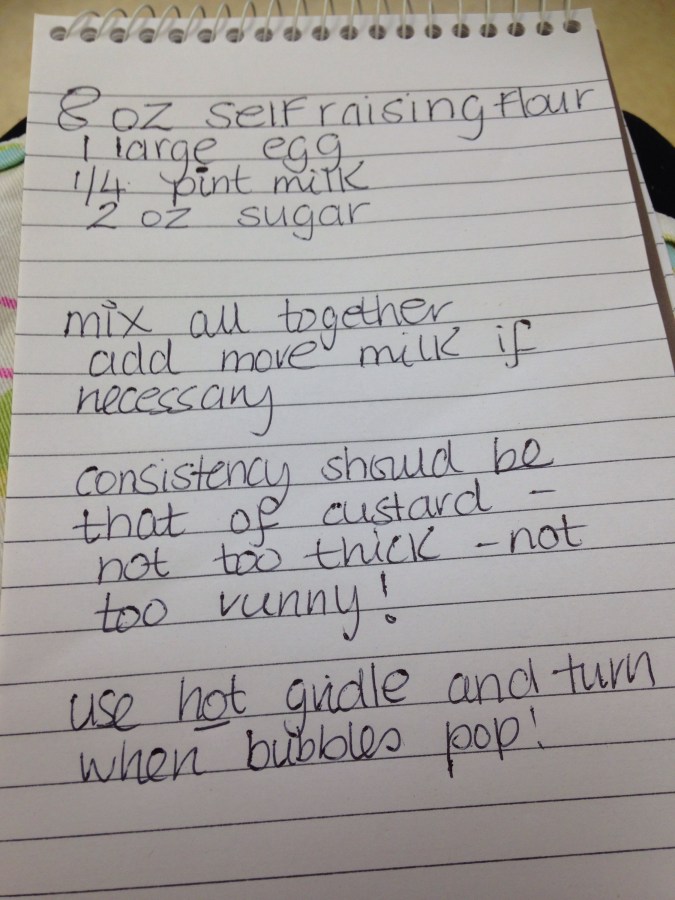 8 oz self raising flour
1 large egg
1/4 pint milk
2 oz sugar
mix all together
add more milk if
necessary
consistency should be
that of custard -
not too thick - not
too runny!
use hot gridle and turn
when bubbles pop!